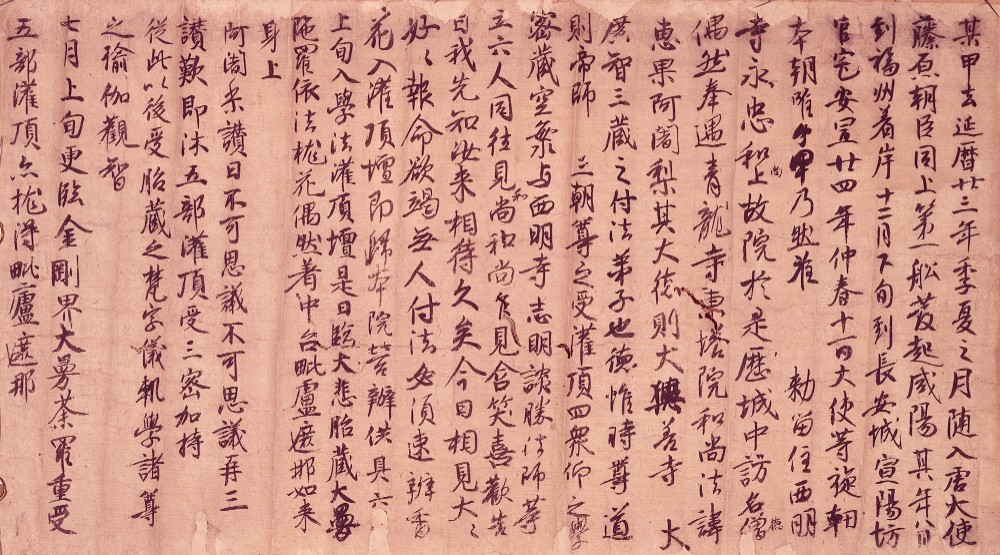 某甲去延暦廿三年季夏之月随入唐大使
藤原朝臣同上第一舩発赴咸陽其年八月
到福州着岸十二月下旬到長安城宣陽坊
官宅安置廿四年仲春十一日大使等旋軔
本朝唯甲孑然准 勅留住西明
寺永忠和上尚故院於是歴城中訪名僧徳
偶然奉遇青龍寺東塔院和尚法諱
恵果阿闍梨其大徳則大興善寺 大
廣智三蔵之付法弟子也徳惟時尊道
則帝師 三朝尊之受灌頂四衆仰之學
密蔵空某与西明寺志明談勝法師等
五六人同往見和尚和尚乍見含笑喜歓告
曰我先知汝来相待久矣今日相見大〻
好〻報命欲竭無人付法必須速辦香
花入灌頂壇即歸本院営辦供具六
上旬入學法灌頂壇是日臨大悲胎蔵大曼
陁羅依法抛花偶然着中台毗盧遮那如来
身上
阿闍梨讃曰不可思議不可思議再三
讃歎即沐五部灌頂受三密加持
従此以後受胎蔵之梵字儀軌學諸尊
之瑜伽觀智
七月上旬更臨金剛界大曼荼羅重受
五部灌頂亦抛得毗盧遮那